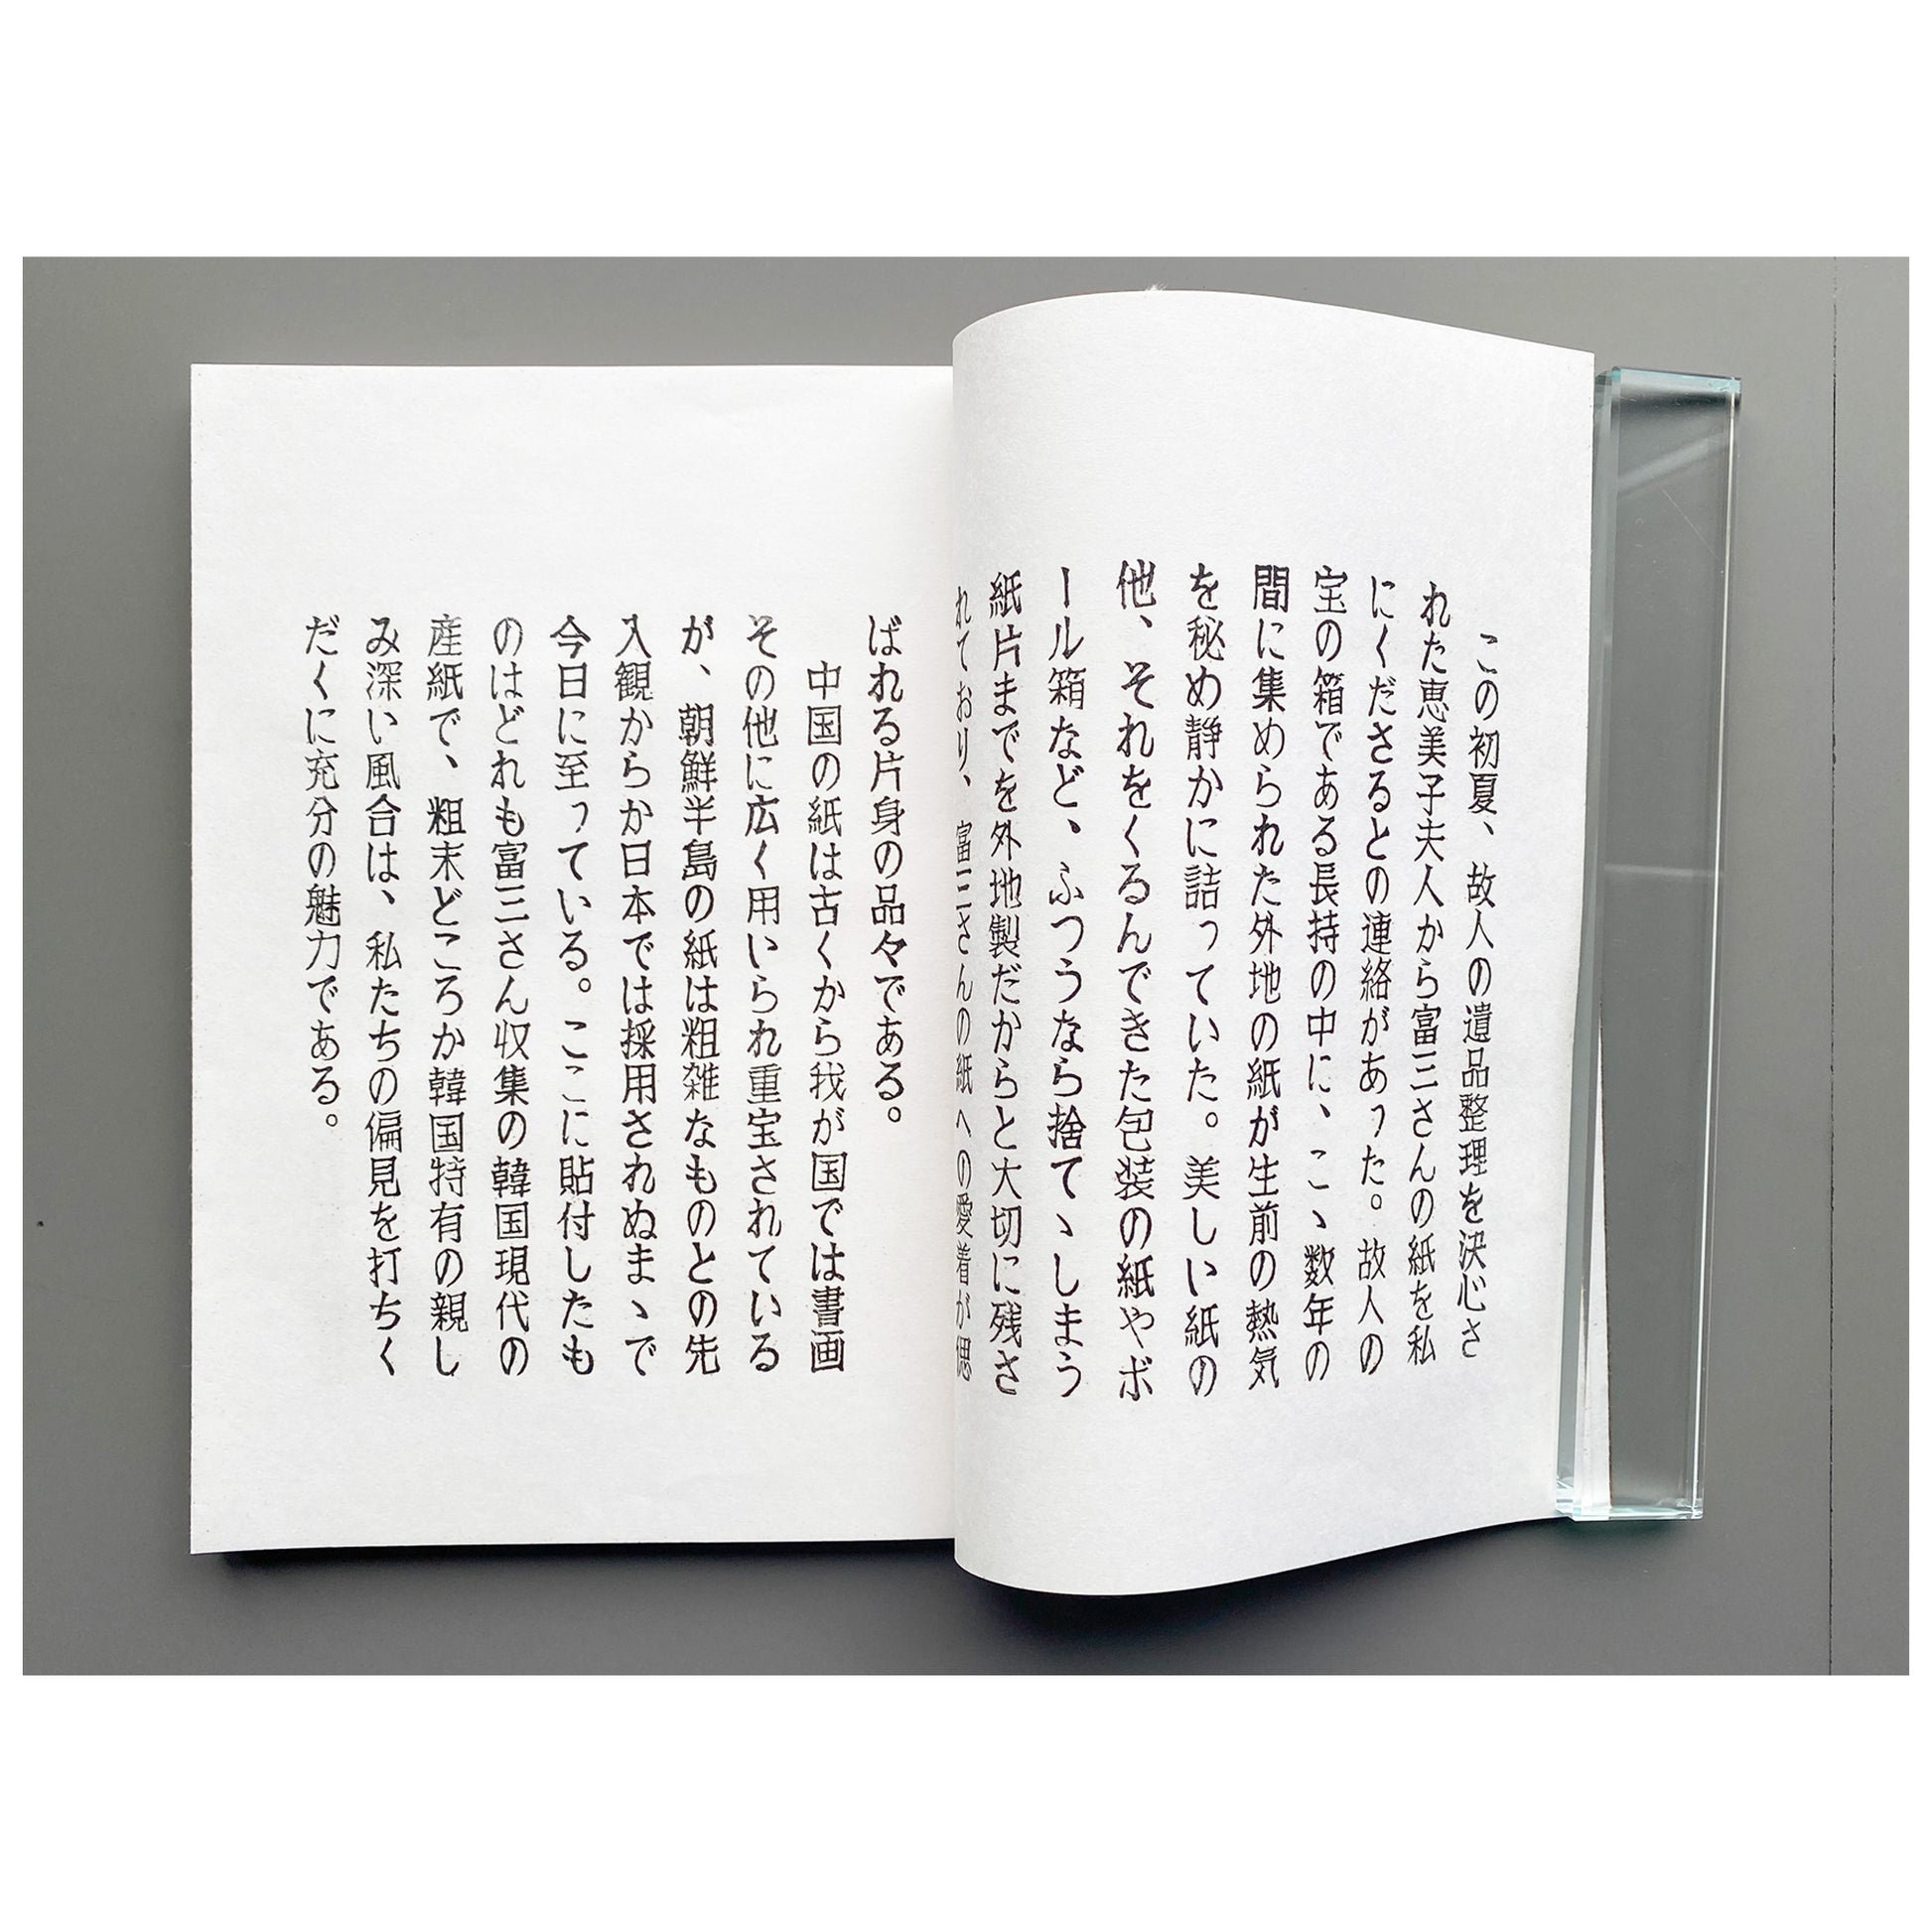 この初夏、故人の遺品整理を決心さ
れた恵美子夫人から富三さんの紙を私
にくださるとの連絡があった。故人の
宝の箱である長持の中に、こゝ数年の
間に集められた外地の紙が生前の熱気
を秘め静かに詰っていた。美しい紙の
他、それをくるんできた包装の紙やボ
ール箱など、ふつうなら捨てゝしまう
紙片までを外地製だからと大切に残さ
れており、富三さんの紙への愛着が偲
ばれる片身の品々である。
中国の紙は古くから我が国では書画
その他に広く用いられ重宝されている
が、朝鮮半島の紙は粗雑なものとの先
入観からか日本では採用されぬまゝで
今日に至っている。ここに貼付したも
のはどれも富三さん収集の韓国現代の
産紙で、粗末どころか韓国特有の親し
み深い風合は、私たちの偏見を打ちく
だくに充分の魅力である。